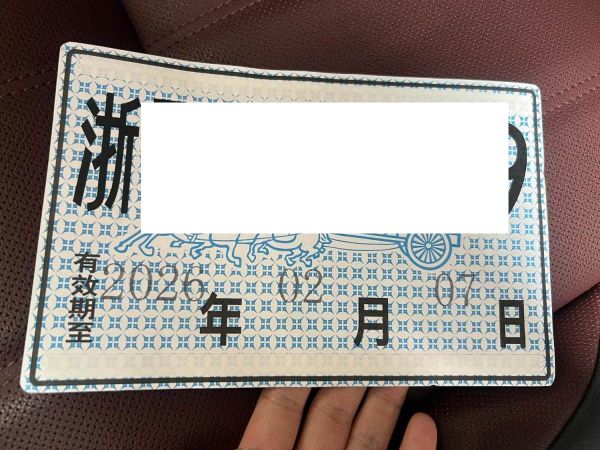 浙 9
有效期至 2026 年 02 月 07 日